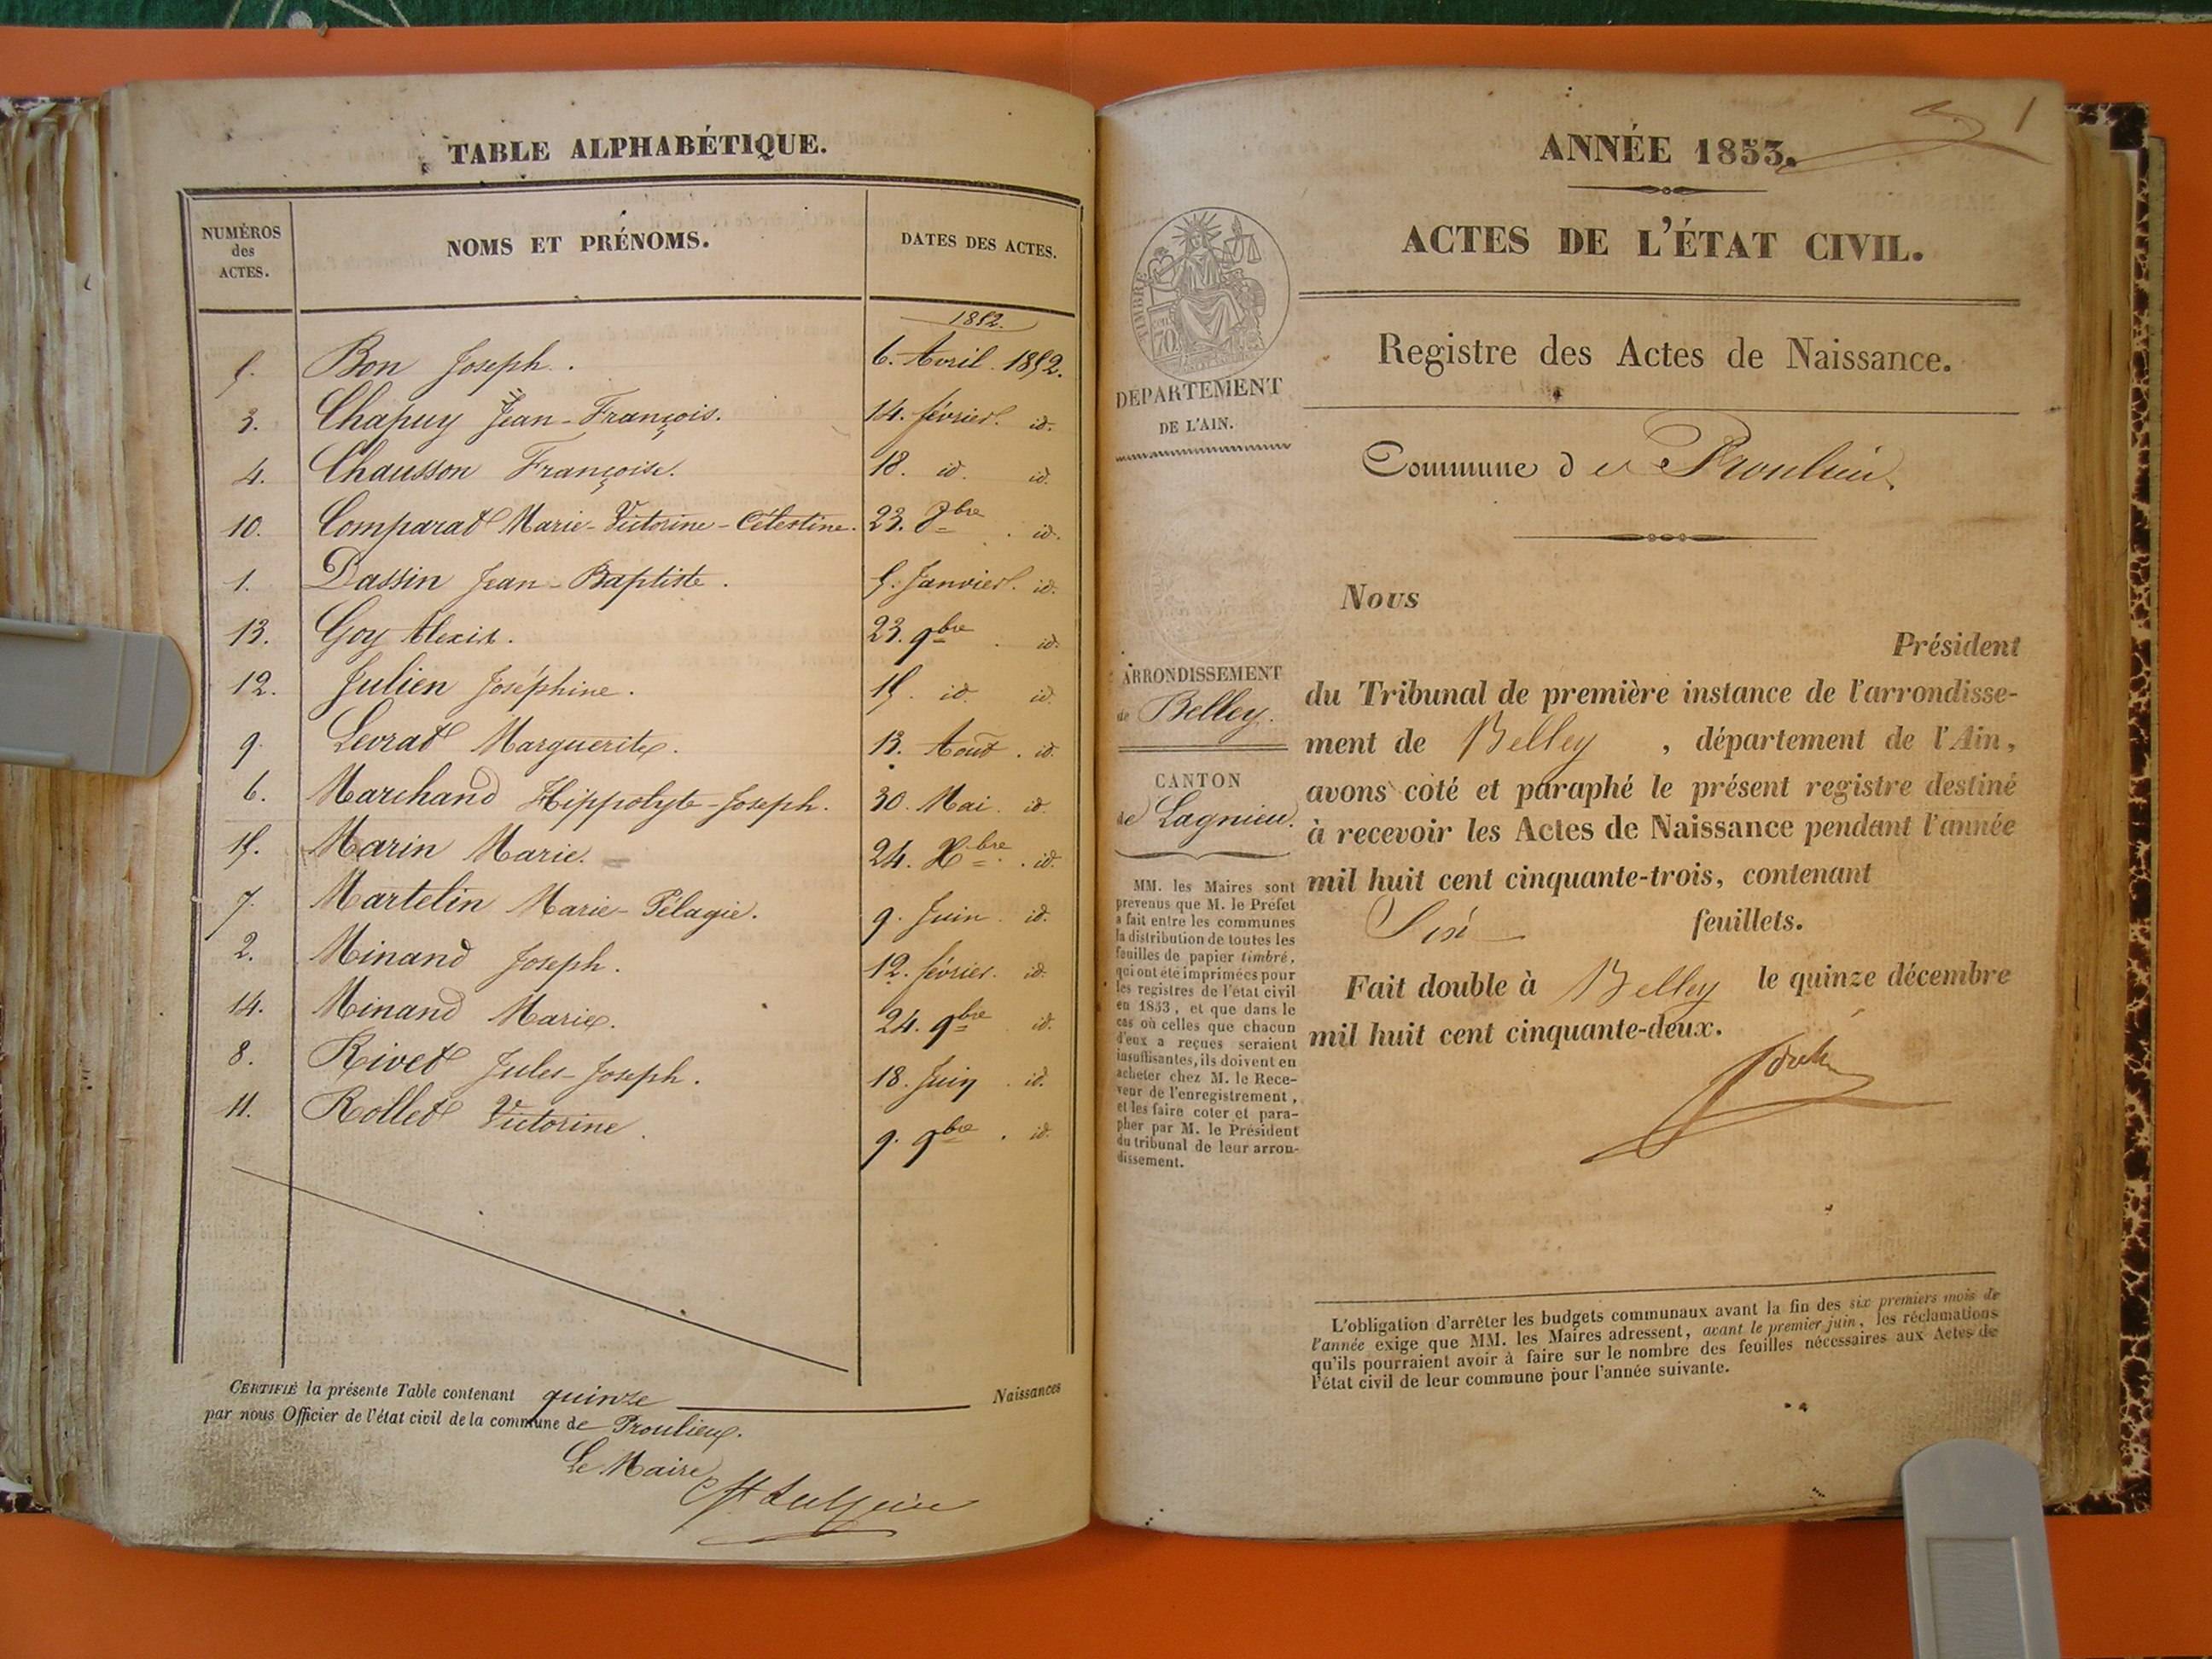 TABLE ALPHABÉTIQUE.
NUMÉROS
des
ACTES.
NOMS ET PRÉNOMS.
DATES DES ACTES.
1852.
5. Bon Joseph. 6. Avril. 1852.
3. Chapuy Jean-François. 14. février. id.
4. Chausson Françoise. 18. id. id.
10. Comparat Marie-Victorine-Célestine. 23. 7bre. id.
1. Dassin Jean-Baptiste. 5. Janvier. id.
13. Goy Alexis. 23. 9bre. id.
12. Julien Joséphine. 15. id id.
9. Levrat Marguerite. 13. Aout. id.
6. Marchand Hippolyte-Joseph. 30. Mai. id.
15. Marin Marie. 24. Xbre. id.
7. Martelin Marie-Pélagie. 9. Juin. id.
2. Minand Joseph. 12. février. id.
14. Minand Marie. 24. 9bre id.
8. Rivet Jules-Joseph. 18. Juin. id.
11. Rollet Victorine. 9. 9bre. id.
CERTIFIÉ la présente Table contenant quinze Naissances
par nous Officier de l'état civil de la commune de Proulieu.
Le Maire
1
ANNÉE 1853.
ACTES DE L'ÉTAT CIVIL.
TIMBRE
70
DÉPARTEMENT
DE L'AIN.
Registre des Actes de Naissance.
Commune de Proulieu.
ARRONDISSEMENT
de Belley.
CANTON
de Lagnieu.
MM. les Maires sont
prévenus que M. le Préfet
a fait entre les communes
la distribution de toutes les
feuilles de papier timbré,
qui ont été imprimées pour
les registres de l'état civil
en 1853, et que dans le
cas où celles que chacun
d'eux a reçues seraient
insuffisantes, ils doivent en
acheter chez M. le Rece-
veur de l'enregistrement,
et les faire coter et para-
pher par M. le Président
du tribunal de leur arron-
dissement.
Nous
Président
du Tribunal de première instance de l'arrondisse-
ment de Belley, département de l'Ain,
avons coté et paraphé le présent registre destiné
à recevoir les Actes de Naissance pendant l'année
mil huit cent cinquante-trois, contenant
Six feuillets.
Fait double à Belley le quinze décembre
mil huit cent cinquante-deux.
L'obligation d'arrêter les budgets communaux avant la fin des six premiers mois de
l'année exige que MM. les Maires adressent, avant le premier juin, les réclamations
qu'ils pourraient avoir à faire sur le nombre des feuilles nécessaires aux Actes de
l'état civil de leur commune pour l'année suivante.